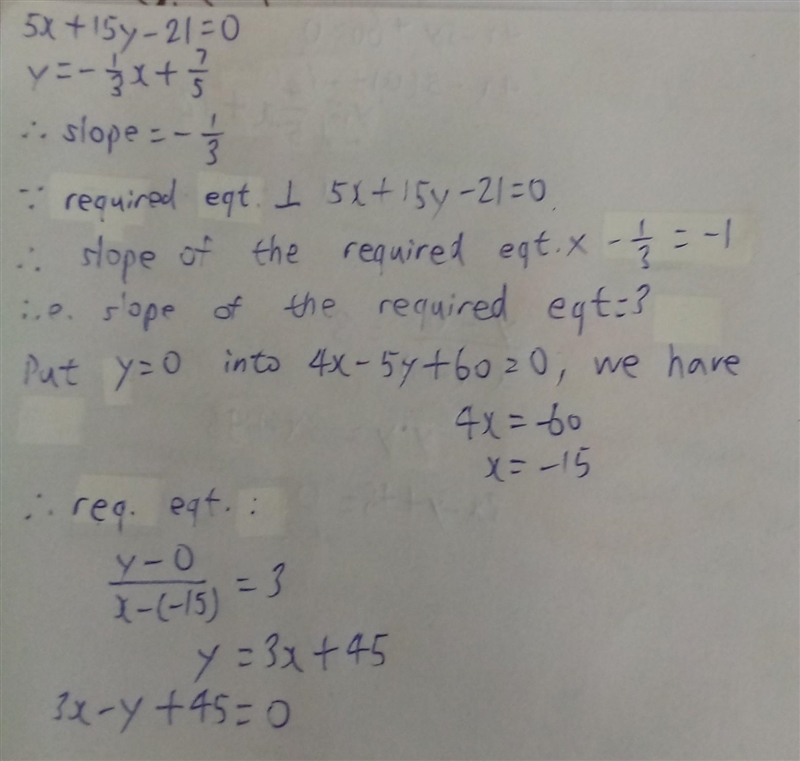 5x+15y-21=0
y=-1/3x+7/5
∴ slope=-1/3
∵ required eqt. ⊥ 5x+15y-21=0.
∴ slope of the required eqt. x -1/3 = -1
i.e. slope of the required eqt=3
Put y=0 into 4x-5y+60=0, we have
4x=-60
x=-15
∴ req. eqt. :
(y-0)/(x-(-15)) = 3
y=3x+45
3x-y+45=0